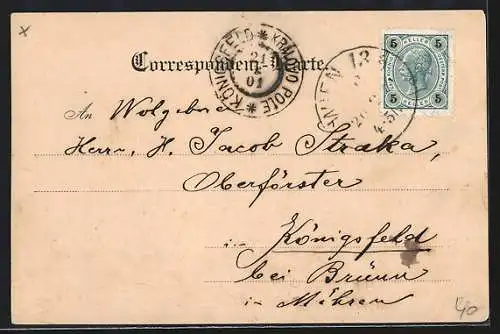 Correspondenz-Karte.
KÖNIGSFELD * KRÁLOVO POLE *
21
2
01
WIEN 13
20
5
5
5
5
An Wolgebor.
Herrn H. Jacob Straka,
Oberförster
in Königsfeld
bei Brünn
in Mähren
40